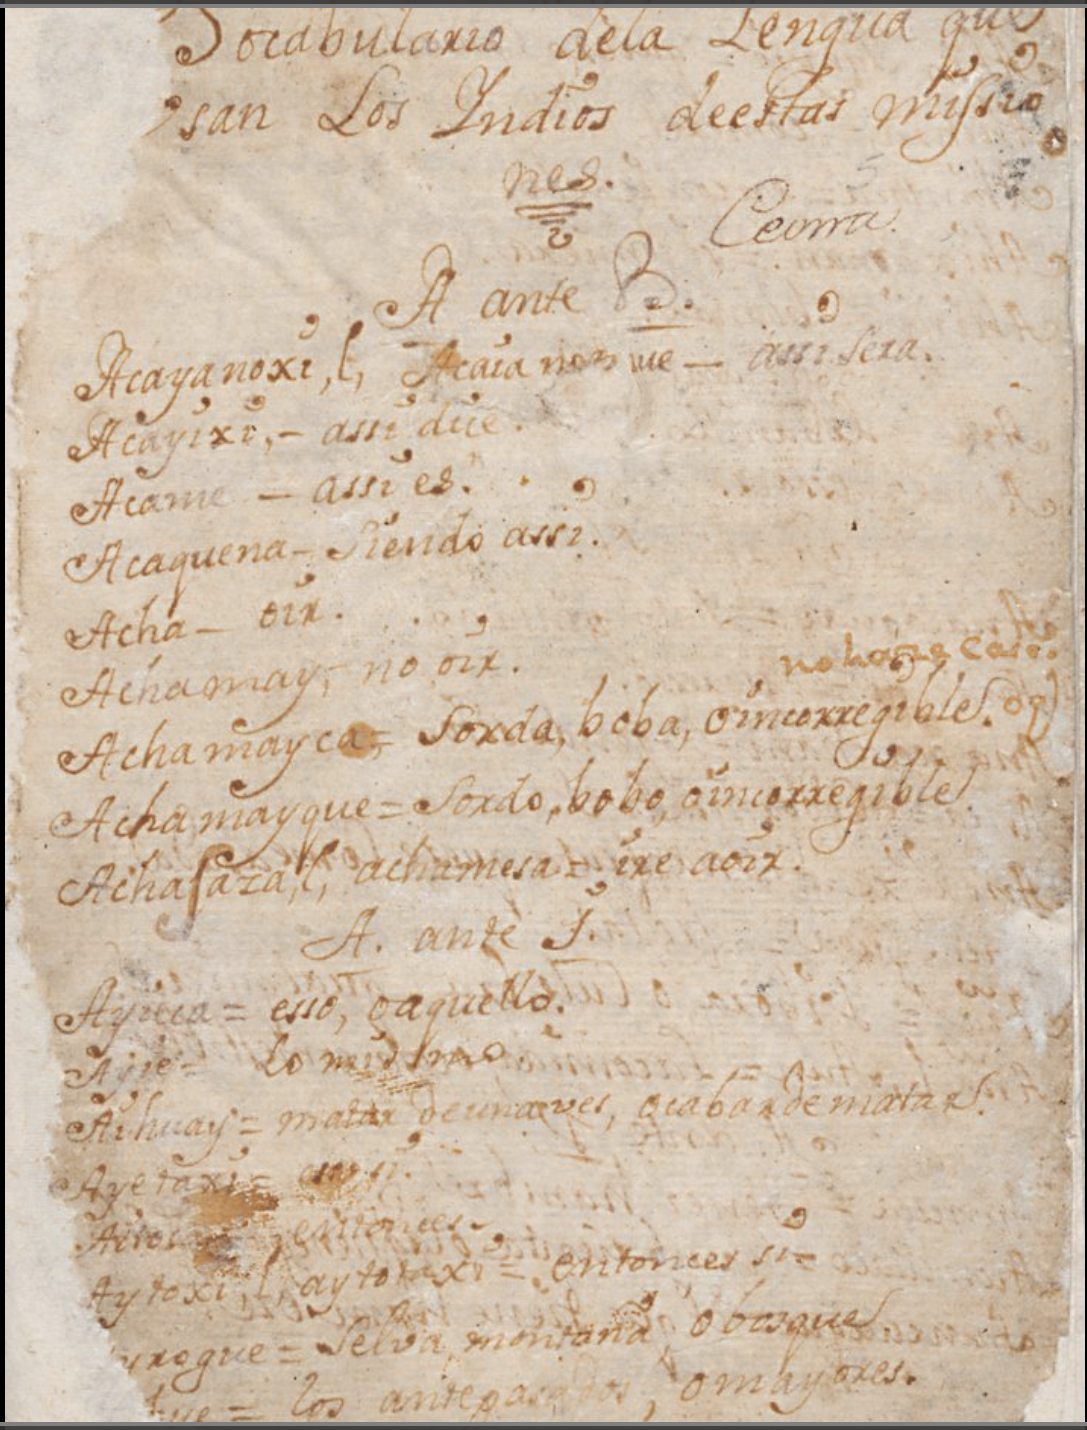 Vocabulario dela Lengua que
Vsan Los Indios deestas missio
nes.
Ceona.
A ante B.
Acayanoxi, l, Acaia — assi sera.
Acayixi, — assi dice.
Acame — assi es.
Acaquena — Siendo assi.
Acha — oir.
Achamay, — no oir.
no haze caso.
Achamayca = Sorda, boba, o incorregible. oq)
Achamayque = Sordo, bobo, o incorregible
Achasaza, l, achamesa = ire a oir.
A. ante I.
Ayueca = esso, o aquello.
Ayie = Lo mismo.
Aihuay = matar de una ves, o cabar de matar.
Ayetaxi = si.
entonces
Aytoxi, l, aytotaxi = entonces si =
yrogue = Selva, montaña, o bosque
que = los antepasados, o mayores.